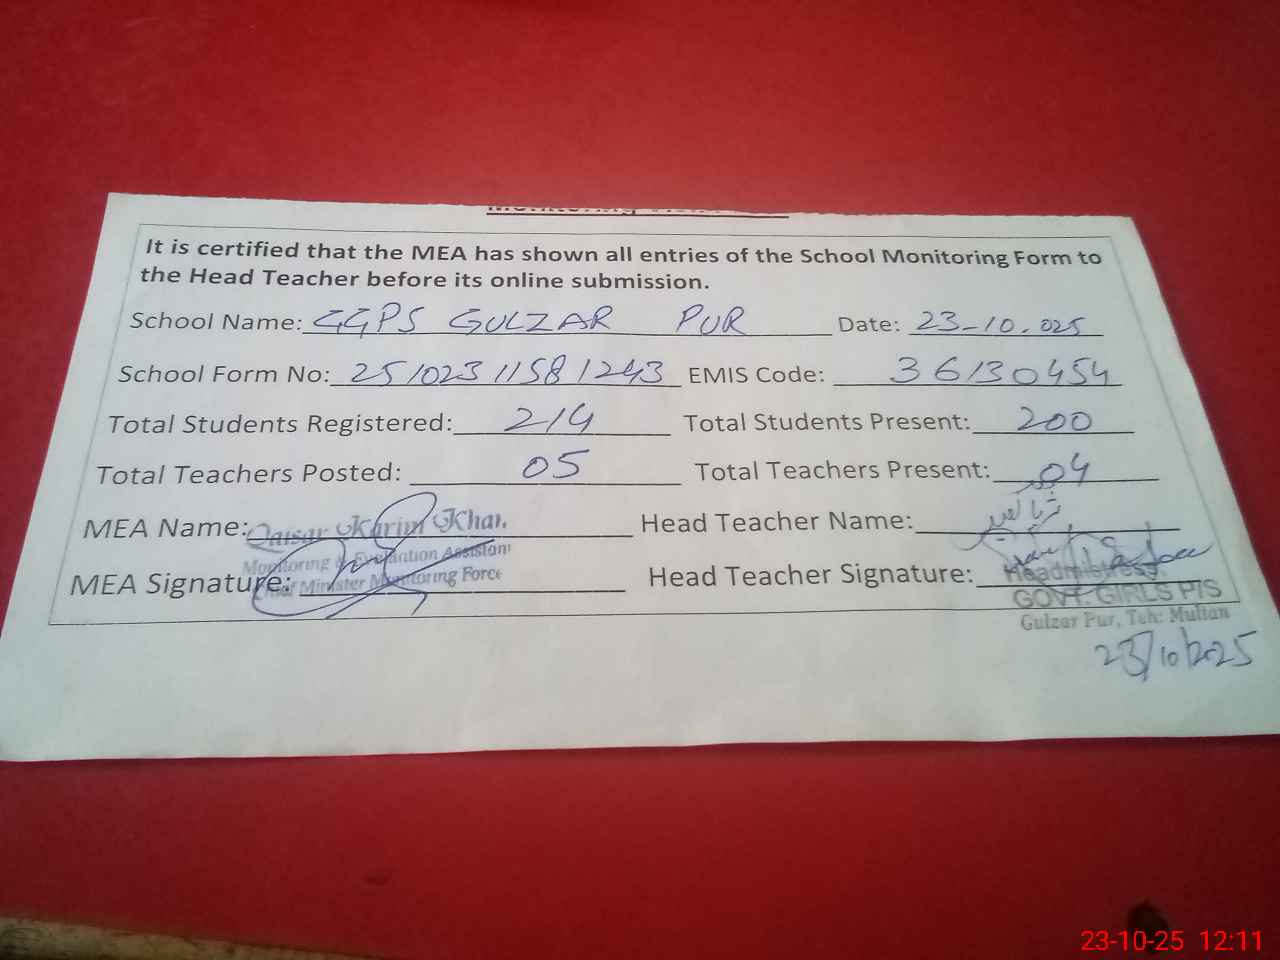 It is certified that the MEA has shown all entries of the School Monitoring Form to
the Head Teacher before its online submission.
School Name: GGPS GULZAR PUR Date: 23-10.025
School Form No: 25102311581243 EMIS Code: 36130454
Total Students Registered: 214 Total Students Present: 200
Total Teachers Posted: 05 Total Teachers Present: 04
MEA Name: Qaisar Karim Khan Head Teacher Name:
Monitoring & Evaluation Assistant
MEA Signature: Chief Minister Monitoring Force Head Teacher Signature:
Headmistress
GOVT. GIRLS P/S
Gulzar Pur, Teh: Multan
23/10/2025
23-10-25 12:11